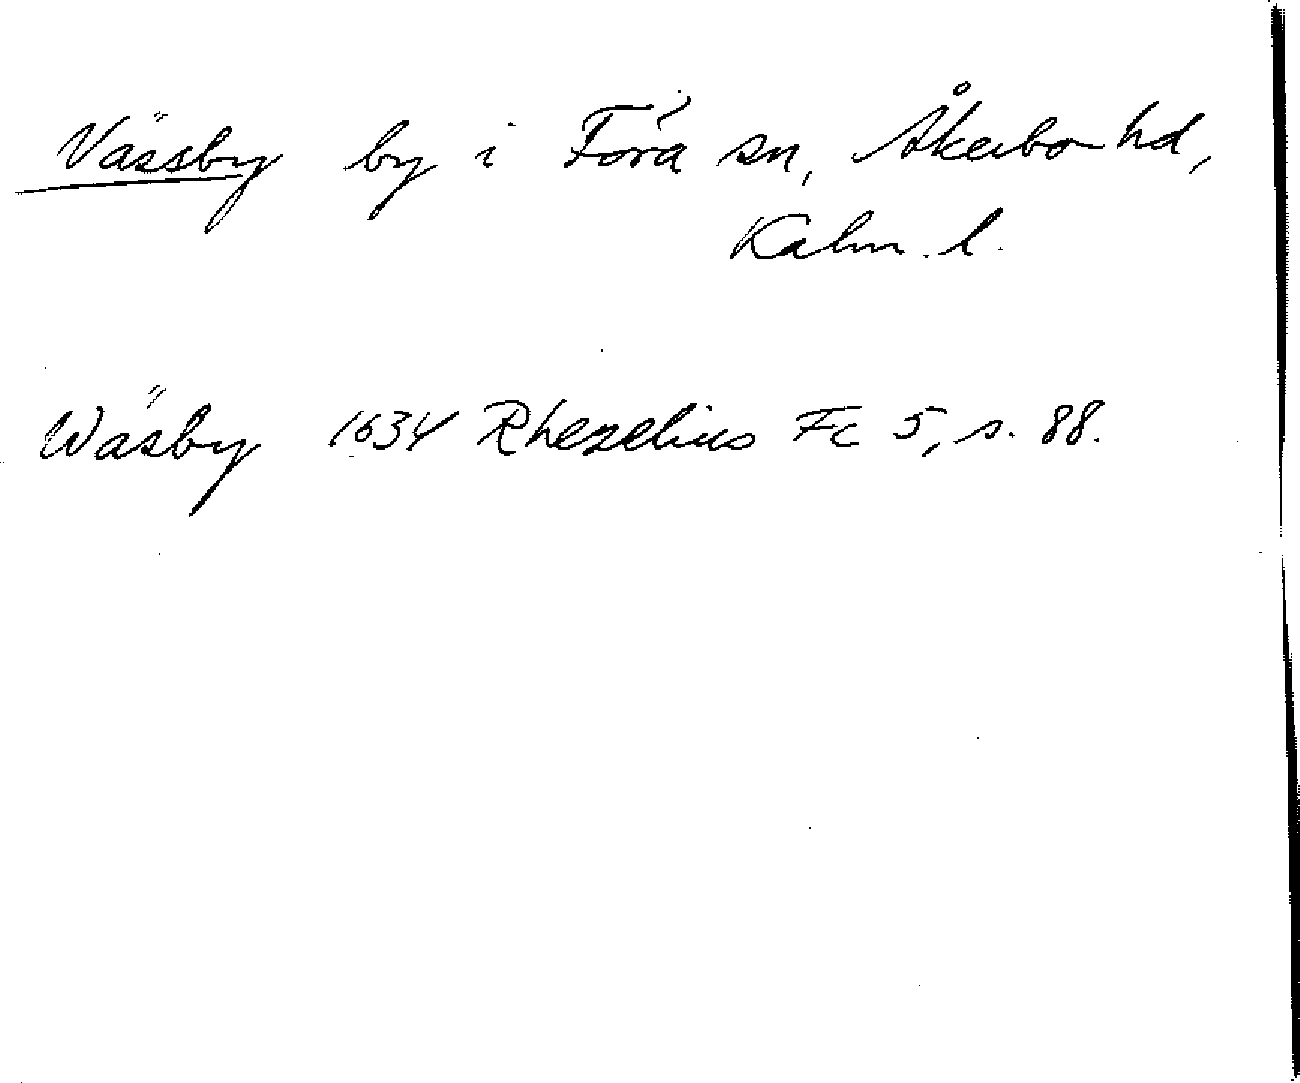 Vässby by i Föra sn, Åkerbo hd,
Kalm. l.
Wäsby 1634 Rhezelius Fc 5, s. 88.